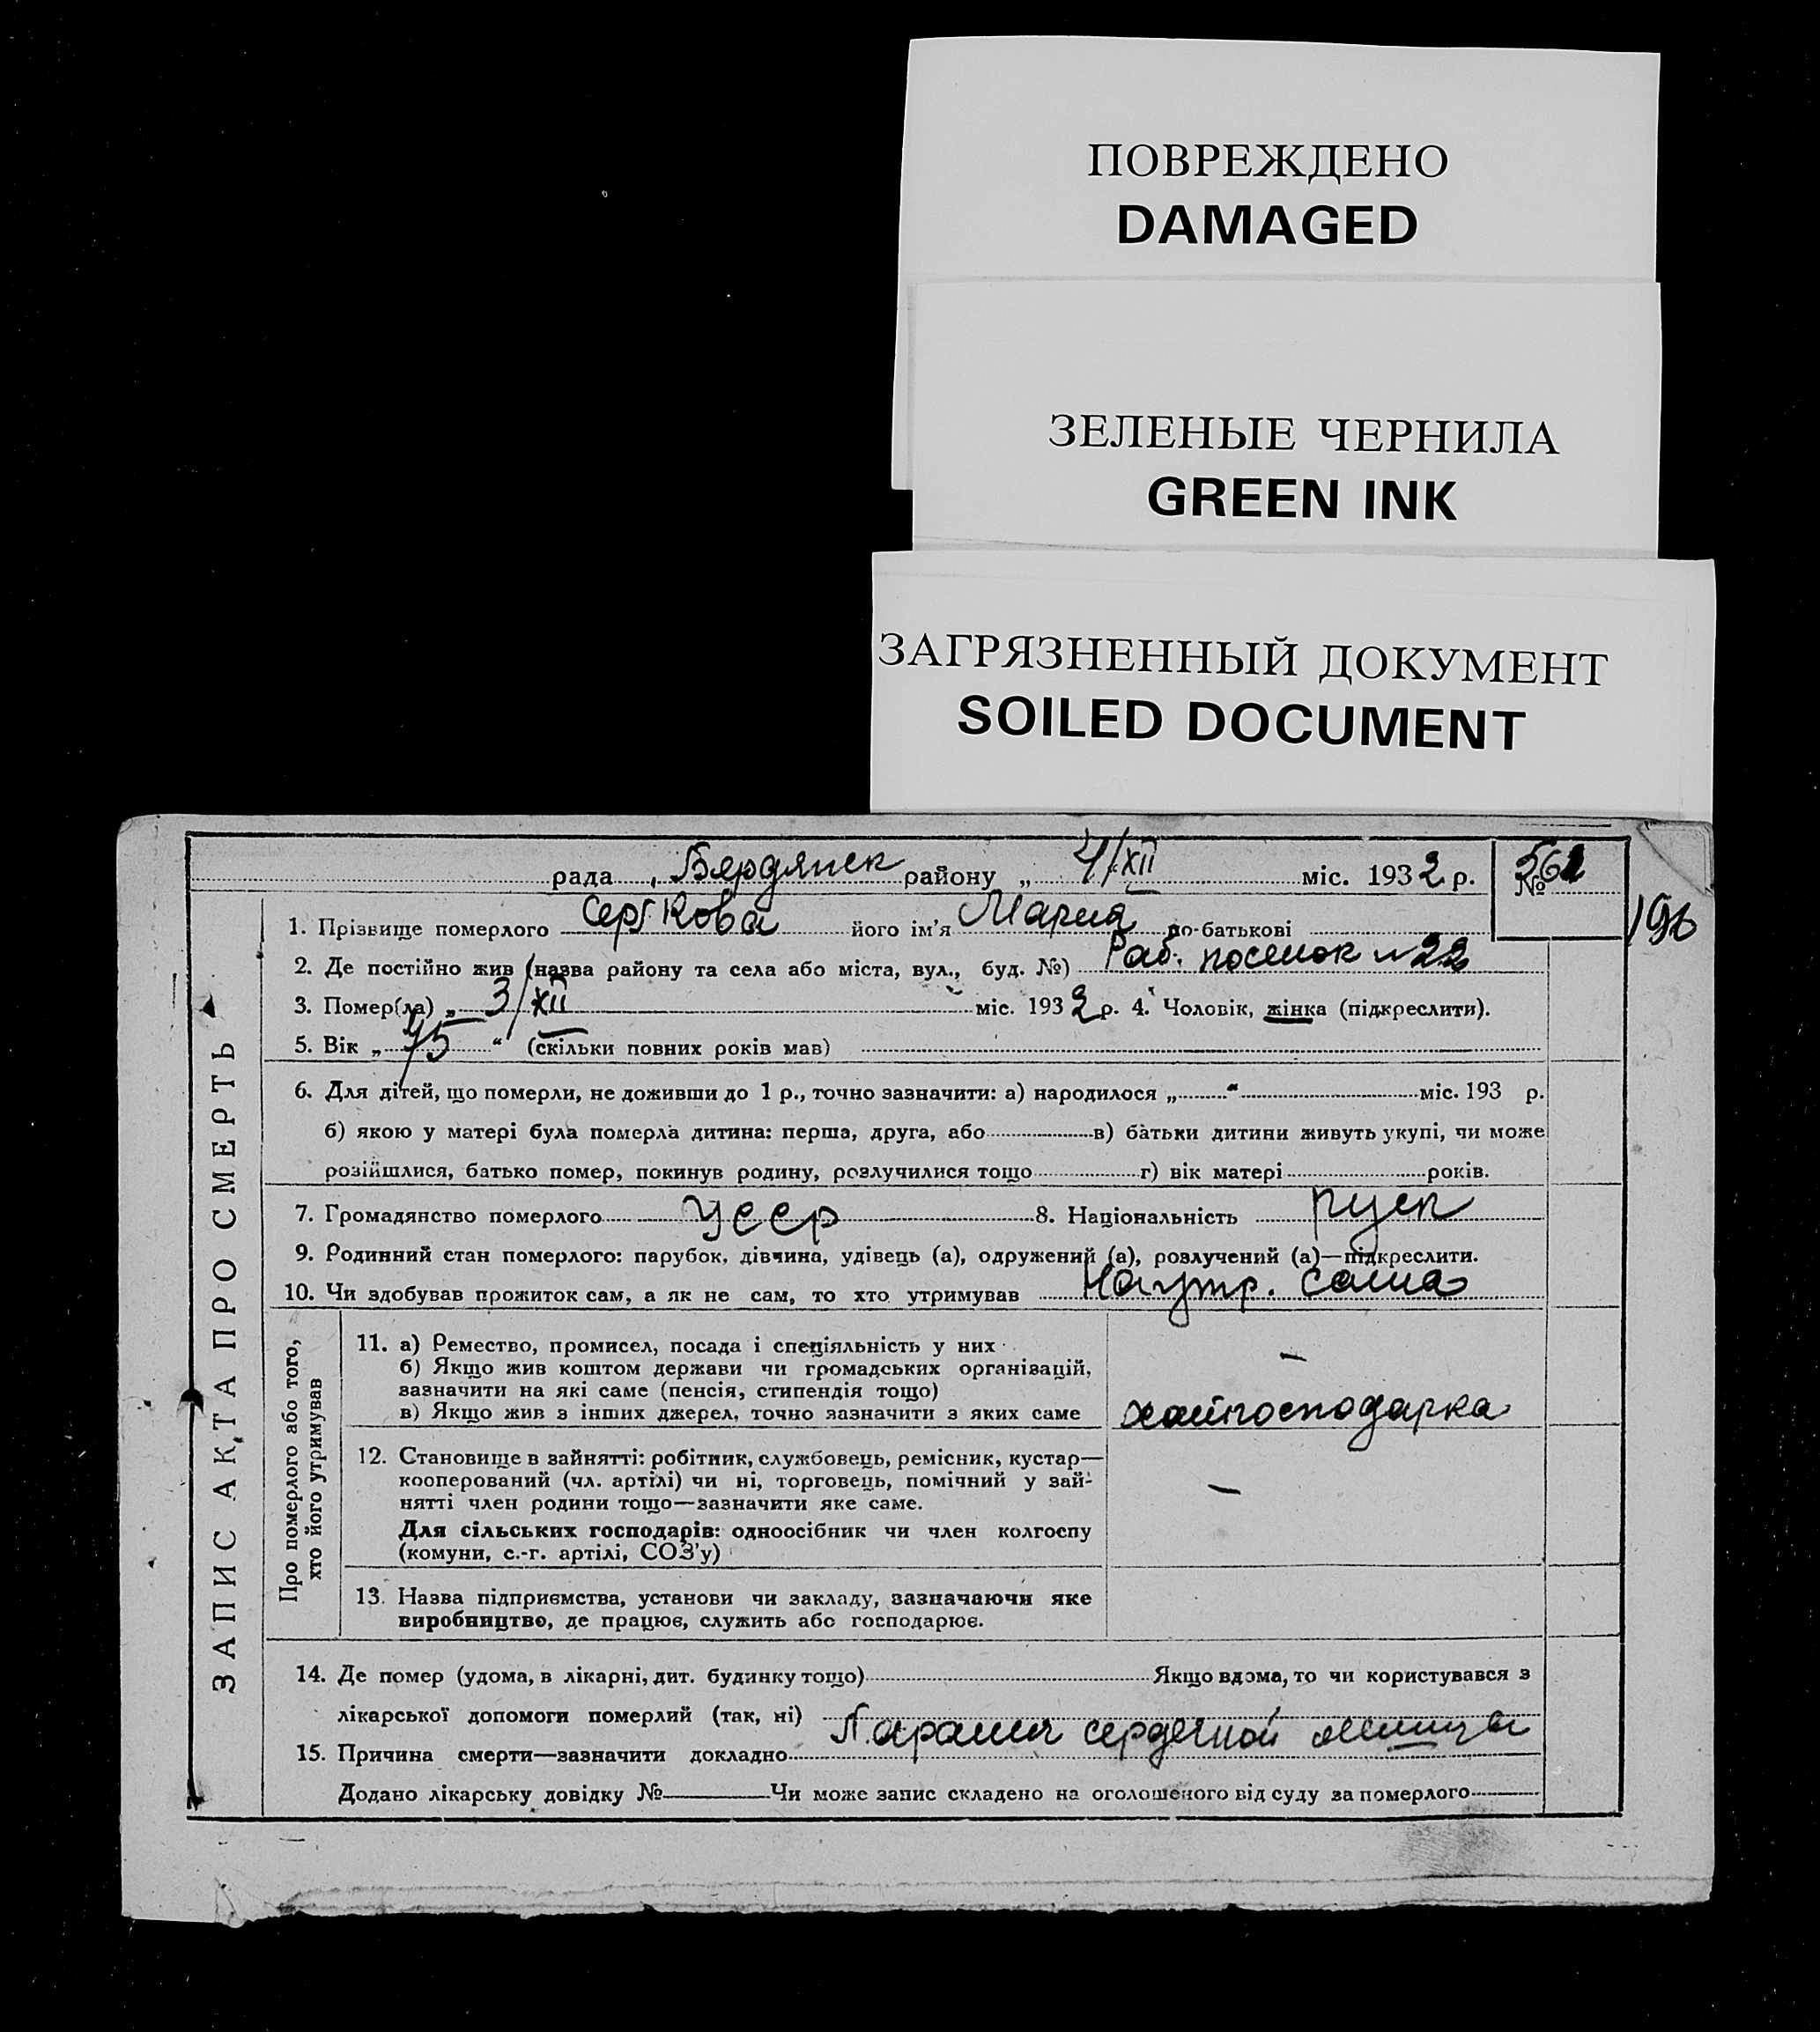 ПОВРЕЖДЕНО
DAMAGED
ЗЕЛЕНЫЕ ЧЕРНИЛА
GREEN INK
ЗАГРЯЗНЕННЫЙ ДОКУМЕНТ
SOILED DOCUMENT
рада, Бердянск району „ 4/XII міс. 1932 р. №
196
1. Прізвище померлого його ім'я Мария по-батькові
2. Де постійно жив (назва району та села або міста, вул., буд. №) Раб. поселок № 22
3. Помер(ла) „ 3/XII міс. 1932 р. 4. Чоловік, жінка (підкреслити).
5. Вік „ 75 “ (скільки повних років мав)
6. Для дітей, що померли, не доживши до 1 р., точно зазначити: а) народилося „ “ міс. 193 р.
б) якою у матері була померла дитина: перша, друга, або в) батьки дитини живуть укупі, чи може
розійшлися, батько помер, покинув родину, розлучилися тощо г) вік матері років.
7. Громадянство померлого УССР 8. Національність Руск
9. Родинний стан померлого: парубок, дівчина, удівець (а), одружений (а), розлучений (а)—підкреслити.
10. Чи здобував прожиток сам, а як не сам, то хто утримував На утр. сама
ЗАПИС АКТА ПРО СМЕРТЬ
Про померлого або того,
хто його утримував
11. а) Ремество, промисел, посада і спеціяльність у них –
б) Якщо жив коштом держави чи громадських організацій,
зазначити на які саме (пенсія, стипендія тощо)
в) Якщо жив з інших джерел, точно зазначити з яких саме
12. Становище в зайнятті: робітник, службовець, ремісник, кустар—
кооперований (чл. артілі) чи ні, торговець, помічний у зай-
нятті член родини тощо—зазначити яке саме. –
Для сільських господарів: одноосібник чи член колгоспу
(комуни, с.-г. артілі, СОЗ'у)
13. Назва підприємства, установи чи закладу, зазначаючи яке
виробництво, де працює, служить або господарює.
14. Де помер (удома, в лікарні, дит. будинку тощо) Якщо вдома, то чи користувався з
лікарської допомоги померлий (так, ні)
15. Причина смерти—зазначити докладно Паралич сердечной мышцы
Додано лікарську довідку № Чи може запис складено на оголошеного від суду за померлого